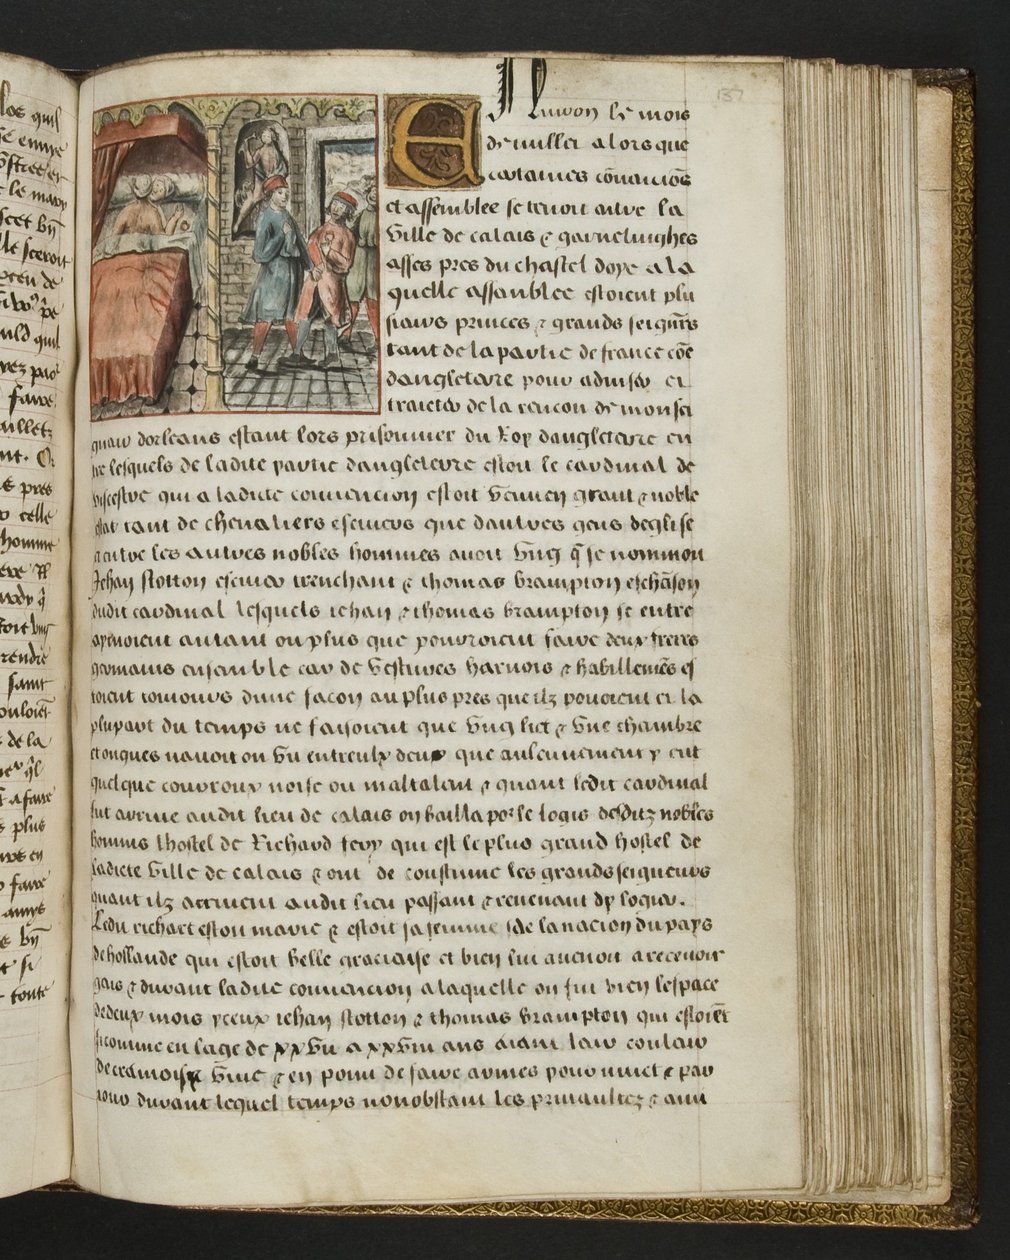 los quil
le mary
scet bn̄
le sceroit
de
quil
faire
pres
celle
homme
rendre
saint
de la
a faire
plus
en
faire
si
toute
137
Enuiron le mois
de iuillet alors que
certaines cōuencion̄s
et assemblee se tenoit entre la
ville de calais & grauelinghes
asses pres du chastel doye a la
quelle assemblee estoient plu
sieurs princes & grands seignr̄s
tant de la partie de france cōe
dangleterre pour aduiser et
traicter de la rencon de monsei
gneur dorleans estant lors prisonnier du Roy dangleterre en
tre lesquels de ladite partie dangleterre estoit le cardinal de
viscestre qui a ladicte conuencion estoit venu en grant & noble
estat tant de chevaliers escuiers que daultres gens deglise
et entre les autres nobles hommes auoit vng q̄ se nommoit
Jehan stotton escuier trenchant & thomas brampton eschāson
dudit cardinal lesquels iehan & thomas brampton se entre
aymoient autant ou plus que pourroient faire deux freres
germains ensamble car de vestures harnois & habillemēs es
toient tousiours dune facon au plus pres que ilz pouoient et la
plupart du temps ne faisoient que vng lict & vne chambre
et onques nauoit on vu entreulx deux que aulcunement y eut
quelque courroux noise ou maltalent & quant ledit cardinal
fut arriue audit lieu de calais on bailla por le logis desditz nobles
hommes lhostel de Richard fery qui est le plus grand hostel de
ladicte ville de calais & ont de coustume les grands seigneurs
quant ilz arriuent audit lieu passant & reuenant dy logier.
Ledit richart estoit marie & estoit sa femme de la nacion du pays
de hollande qui estoit belle gracieuse et bien lui auenoit a receuoir
gens & durant ladite conuencion a laquelle on fut bien lespace
de deux mois yceux iehan stotton & thomas brampton qui estoiēt
si comme en lage de xxvii a xxviii ans aiant leur couleur
de cramoisy viue & en point de faire armes pour nuict & par
iour durant lequel temps nonobstant les priuaultez & ami